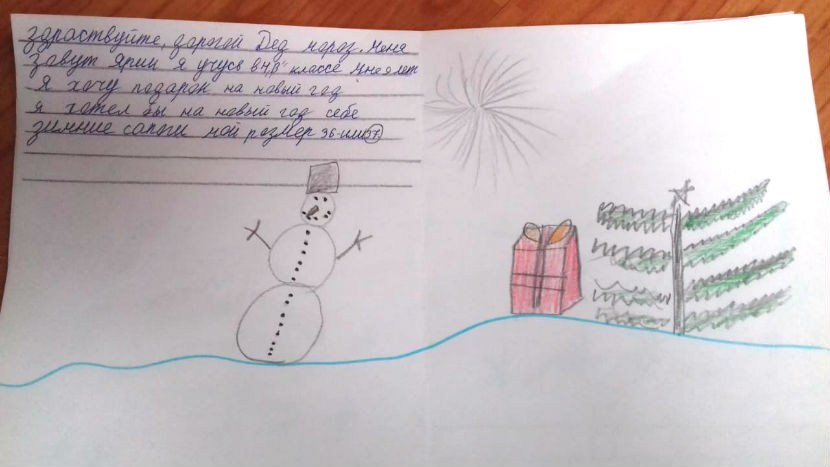 здраствуйте, дорогой Дед мороз. Меня
зовут Ярик я учусь в 4 "В" классе Мне 9 лет
я хочу подарок на новый год
я хотел бы на новый год себе
зимние сапоги мой размер 36-или 37.